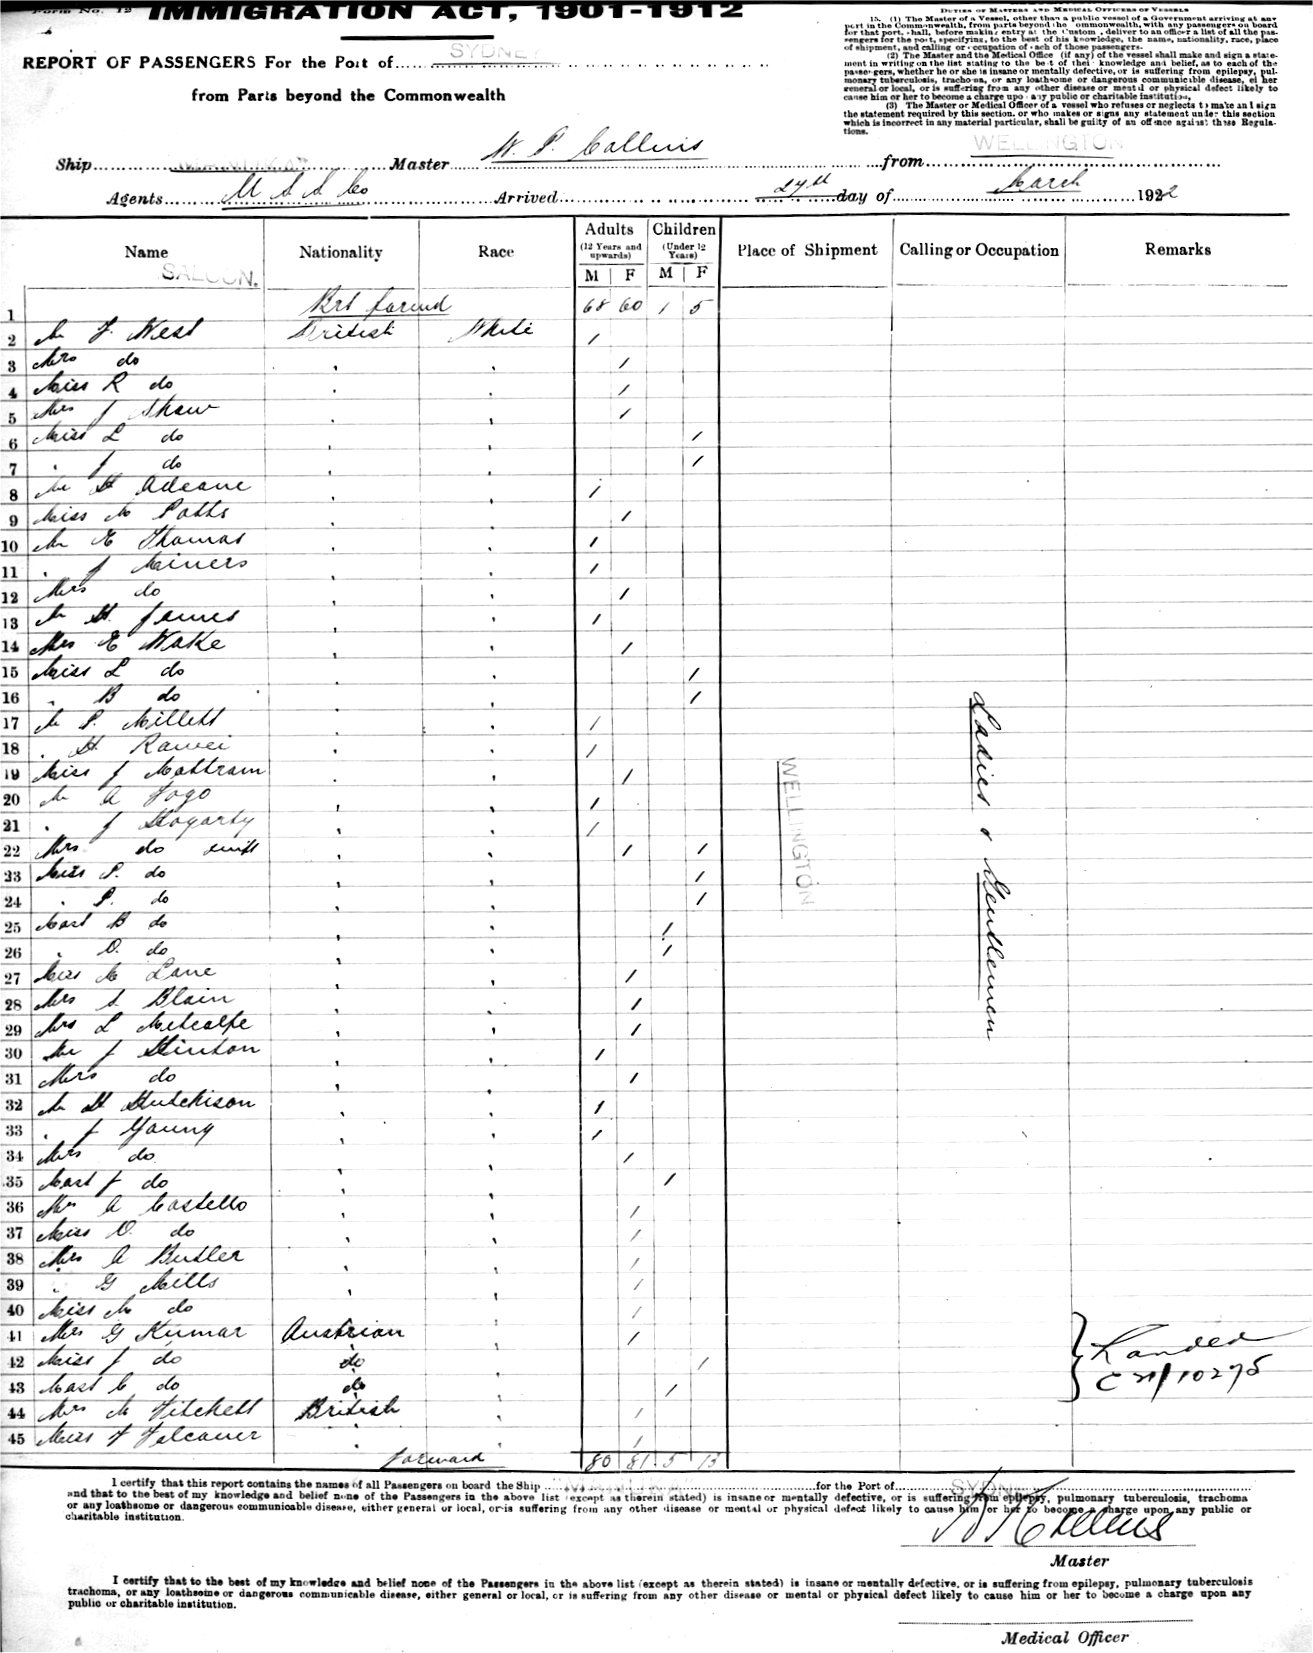 Form No. 12
IMMIGRATION ACT, 1901-1912
REPORT OF PASSENGERS For the Port of SYDNEY
from Parts beyond the Commonwealth
DUTIES OF MASTERS AND MEDICAL OFFICERS OF VESSELS
15. (1) The Master of a Vessel, other than a public vessel of a Government arriving at any
port in the Commonwealth, from parts beyond the Commonwealth, with any passengers on board
for that port, shall, before making entry at the Customs, deliver to an officer a list of all the pas-
sengers for the port, specifying, to the best of his knowledge, the name, nationality, race, place
of shipment, and calling or occupation of each of those passengers.
(2) The Master and the Medical Office (if any) of the vessel shall make and sign a state-
ment in writing on the list stating to the best of their knowledge and belief, as to each of the
passengers, whether he or she is insane or mentally defective, or is suffering from epilepsy, pul-
monary tuberculosis, trachoma, or any loathsome or dangerous communicable disease, either
general or local, or is suffering from any other disease or mental or physical defect likely to
cause him or her to become a charge upon any public or charitable institution.
(3) The Master or Medical Officer of a vessel who refuses or neglects to make and sign
the statement required by this section, or who makes or signs any statement under this section
which is incorrect in any material particular, shall be guilty of an offence against these Regula-
tions.
Ship MANUKA Master W. P. Collins from WELLINGTON
Agents U S S Co Arrived 27th day of March 1922
Name Nationality Race Adults (12 Years and upwards) M F Children (Under 12 Years) M F Place of Shipment Calling or Occupation Remarks
SALOON.
1 Brt forwd 68 60 1 5
2 Mr J. West British White /
3 Mrs do /
4 Miss R do /
5 Mrs J Shaw /
6 Miss L do /
7 " J do /
8 Mr H Adeane /
9 Miss M Potts /
10 Mr E Thomas /
11 " J Miners /
12 Mrs do /
13 Mr H. James /
14 Mrs E Wake /
15 Miss L do /
16 " B do /
17 Mr P. Millett /
18 " H Rawei /
19 Miss J Mottram /
20 Mr A Fogo /
21 " J Hogarty /
22 Mrs do inft / /
23 Miss P. do /
24 " P. do /
25 Mast B do /
26 " O. do /
27 Miss M Lane /
28 Mrs S Blain /
29 Mrs L Metcalfe /
30 Mr J Hinton /
31 Mrs do /
32 Mr H Hutchison /
33 " J Young /
34 Mrs do /
35 Mast J do /
36 Mrs A Costello /
37 Miss O. do /
38 Mrs A Butler /
39 " G Mills /
40 Miss M do /
41 Mrs G Kumar Austrian /
42 Miss J do do /
43 Mast C do do /
44 Mrs M Fitchett British /
45 Miss F Falconer /
forward 80 81 5 13
WELLINGTON
Ladies & Gentlemen
Landed
C 21/10275
I certify that this report contains the names of all Passengers on board the Ship MANUKA for the Port of SYDNEY
and that to the best of my knowledge and belief none of the Passengers in the above list (except as therein stated) is insane or mentally defective, or is suffering from epilepsy, pulmonary tuberculosis, trachoma
or any loathsome or dangerous communicable disease, either general or local, or is suffering from any other disease or mental or physical defect likely to cause him or her to become a charge upon any public or
charitable institution.
W P Collins
Master
I certify that to the best of my knowledge and belief none of the Passengers in the above list (except as therein stated) is insane or mentally defective, or is suffering from epilepsy, pulmonary tuberculosis
trachoma, or any loathsome or dangerous communicable disease, either general or local, or is suffering from any other disease or mental or physical defect likely to cause him or her to become a charge upon any
public or charitable institution.
Medical Officer